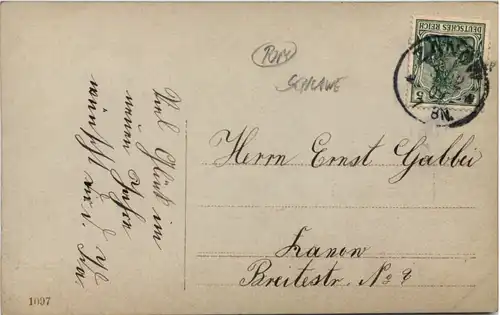 Viel Glück im
neuen Jahre
wünscht
DEUTSCHES REICH
5
ZANOW
8N.
Pom
SCHLAWE
Herrn Ernst Gabbei
Zanow
Breitestr. No 9
1097